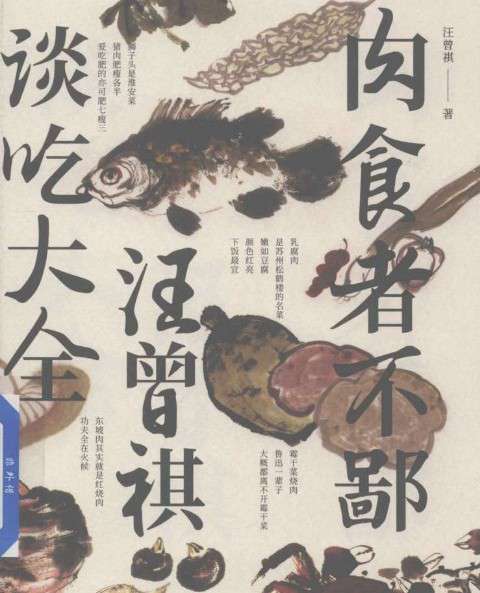 汪曾祺——著
肉食者不鄙
汪曾祺
谈吃大全
狮子头是淮安菜
猪肉肥瘦各半
爱吃肥的亦可肥七瘦三
乳腐肉
是苏州松鹤楼的名菜
嫩如豆腐
颜色红亮
下饭最宜
霉干菜烧肉
鲁迅一辈子
大概都离不开霉干菜
东坡肉其实就是红烧肉
功夫全在火候